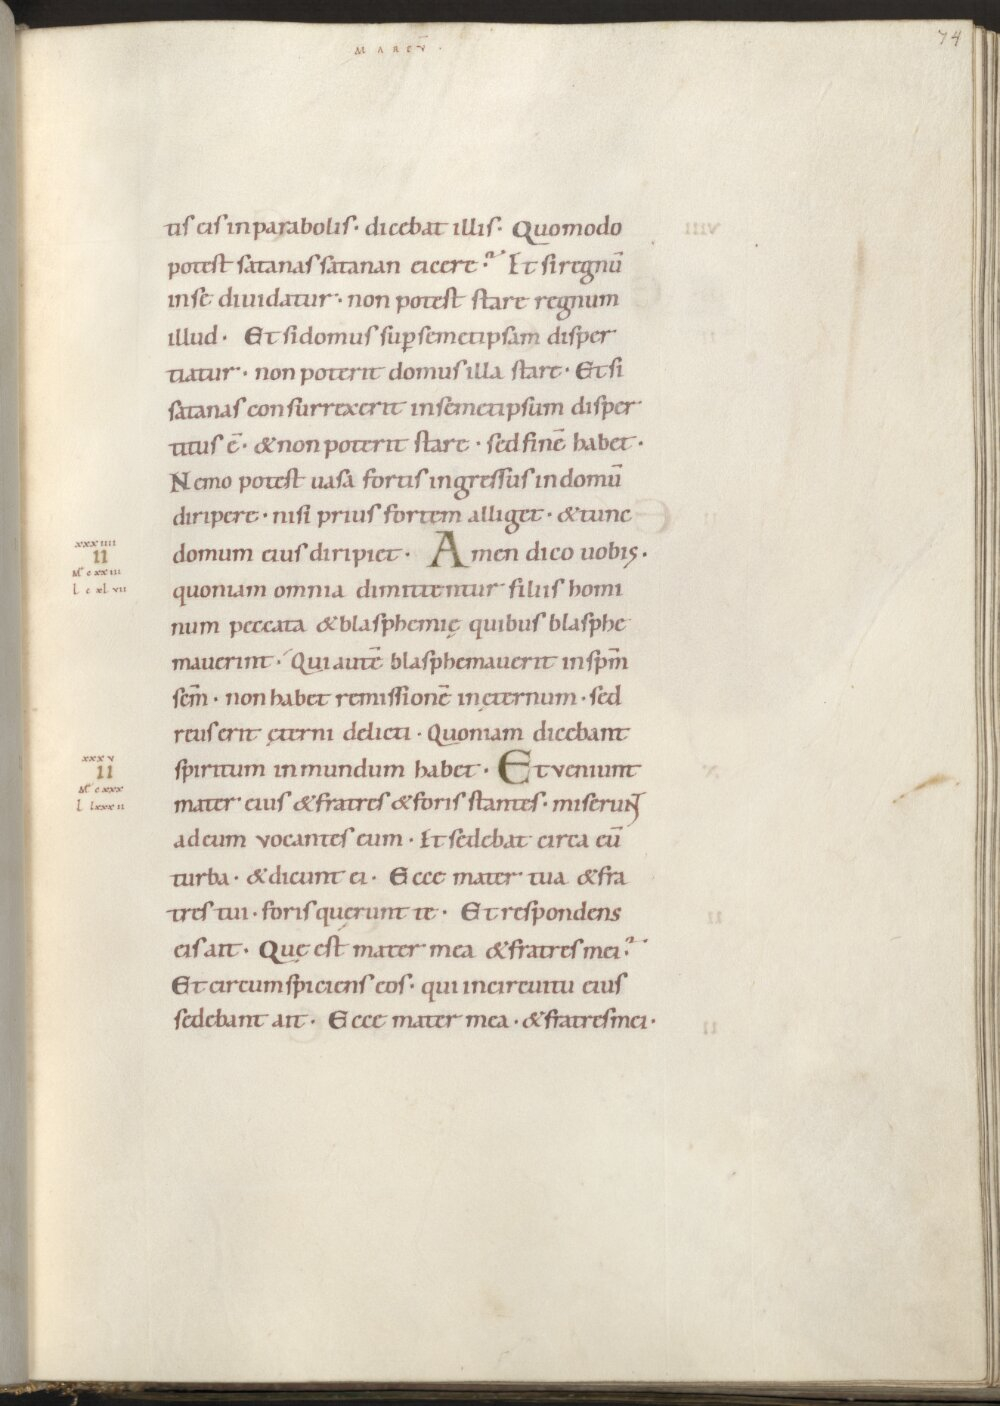 MARCV̄.
74
tis eis in parabolis· dicebat illis· Quomodo
potest satanas satanan eicere? Et si regnū
in se diuidatur· non potest stare regnum
illud· Et si domus sup̱ semetipsam disper
tiatur· non poterit domus illa stare· Et si
satanas consurrexerit in semetipsum disper
titus ē· & non poterit stare· sed finē habet·
Nemo potest uasa fortis ingressus in domū
diripere· nisi prius fortem alliget· & tunc
domum eius diripiet· Amen dico uobis·
quoniam omnia dimittentur filiis homi
num peccata & blasphemię quibus blasphe
mauerint· Qui autē blasphemauerit in spm̄
sem̄· non habet remissionē in ęternum· sed
reus erit ęterni delicti· Quoniam dicebant
spiritum inmundum habet· Et veniunt
mater eius & fratres & foris stantes· miserunt
ad eum vocantes eum· Et sedebat circa eū
turba· & dicunt ei· Ecce mater tua & fra
tres tui· foris quęrunt te· Et respondens
eis ait· Quę est mater mea & fratres mei?
Et circumspiciens eos· qui in circuitu eius
sedebant ait· Ecce mater mea· & fratres mei·
xxxiiii
II
Mt cxxiii
L cxLvii
xxxv
II
Mt cxxx
L Lxxxii